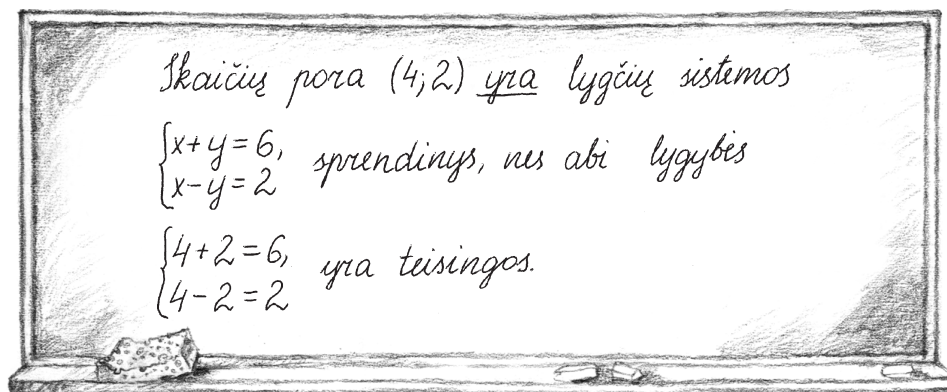 Skaičių pora (4; 2) yra lygčių sistemos
{x + y = 6,
x − y = 2 sprendinys, nes abi lygybės
{4 + 2 = 6,
4 − 2 = 2 yra teisingos.